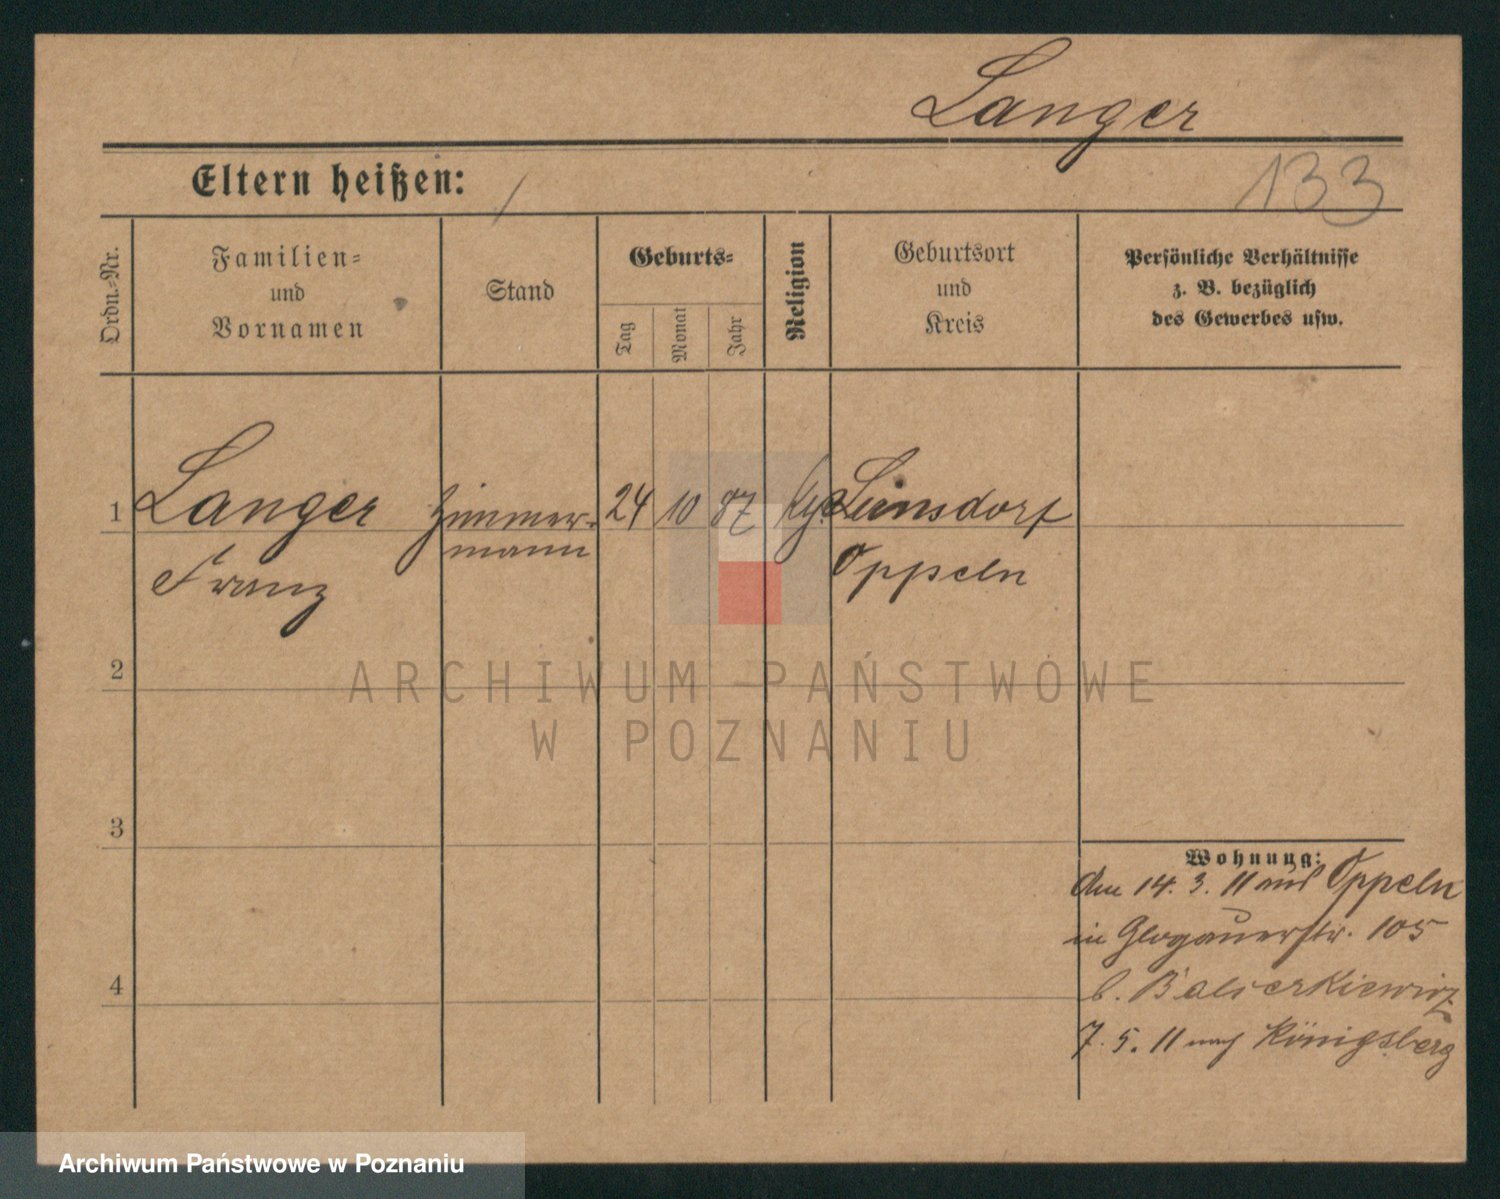 Langer
133
Eltern heißen: /
Ordn.-Nr.
Familien-
und
Vornamen
Stand
Geburts-
Tag
Monat
Jahr
Religion
Geburtsort
und
Kreis
Persönliche Verhältnisse
z. B. bezüglich
des Gewerbes usw.
1 Langer Zimmer- 24 10 87
mann
Franz
Oppeln
2
3
4
Wohnung:
14. 3. 11 aus Oppeln
in Glogauerstr. 105
b. Balserkiewicz
7. 5. 11 nach Königsberg
ARCHIWUM PAŃSTWOWE
W POZNANIU
Archiwum Państwowe w Poznaniu